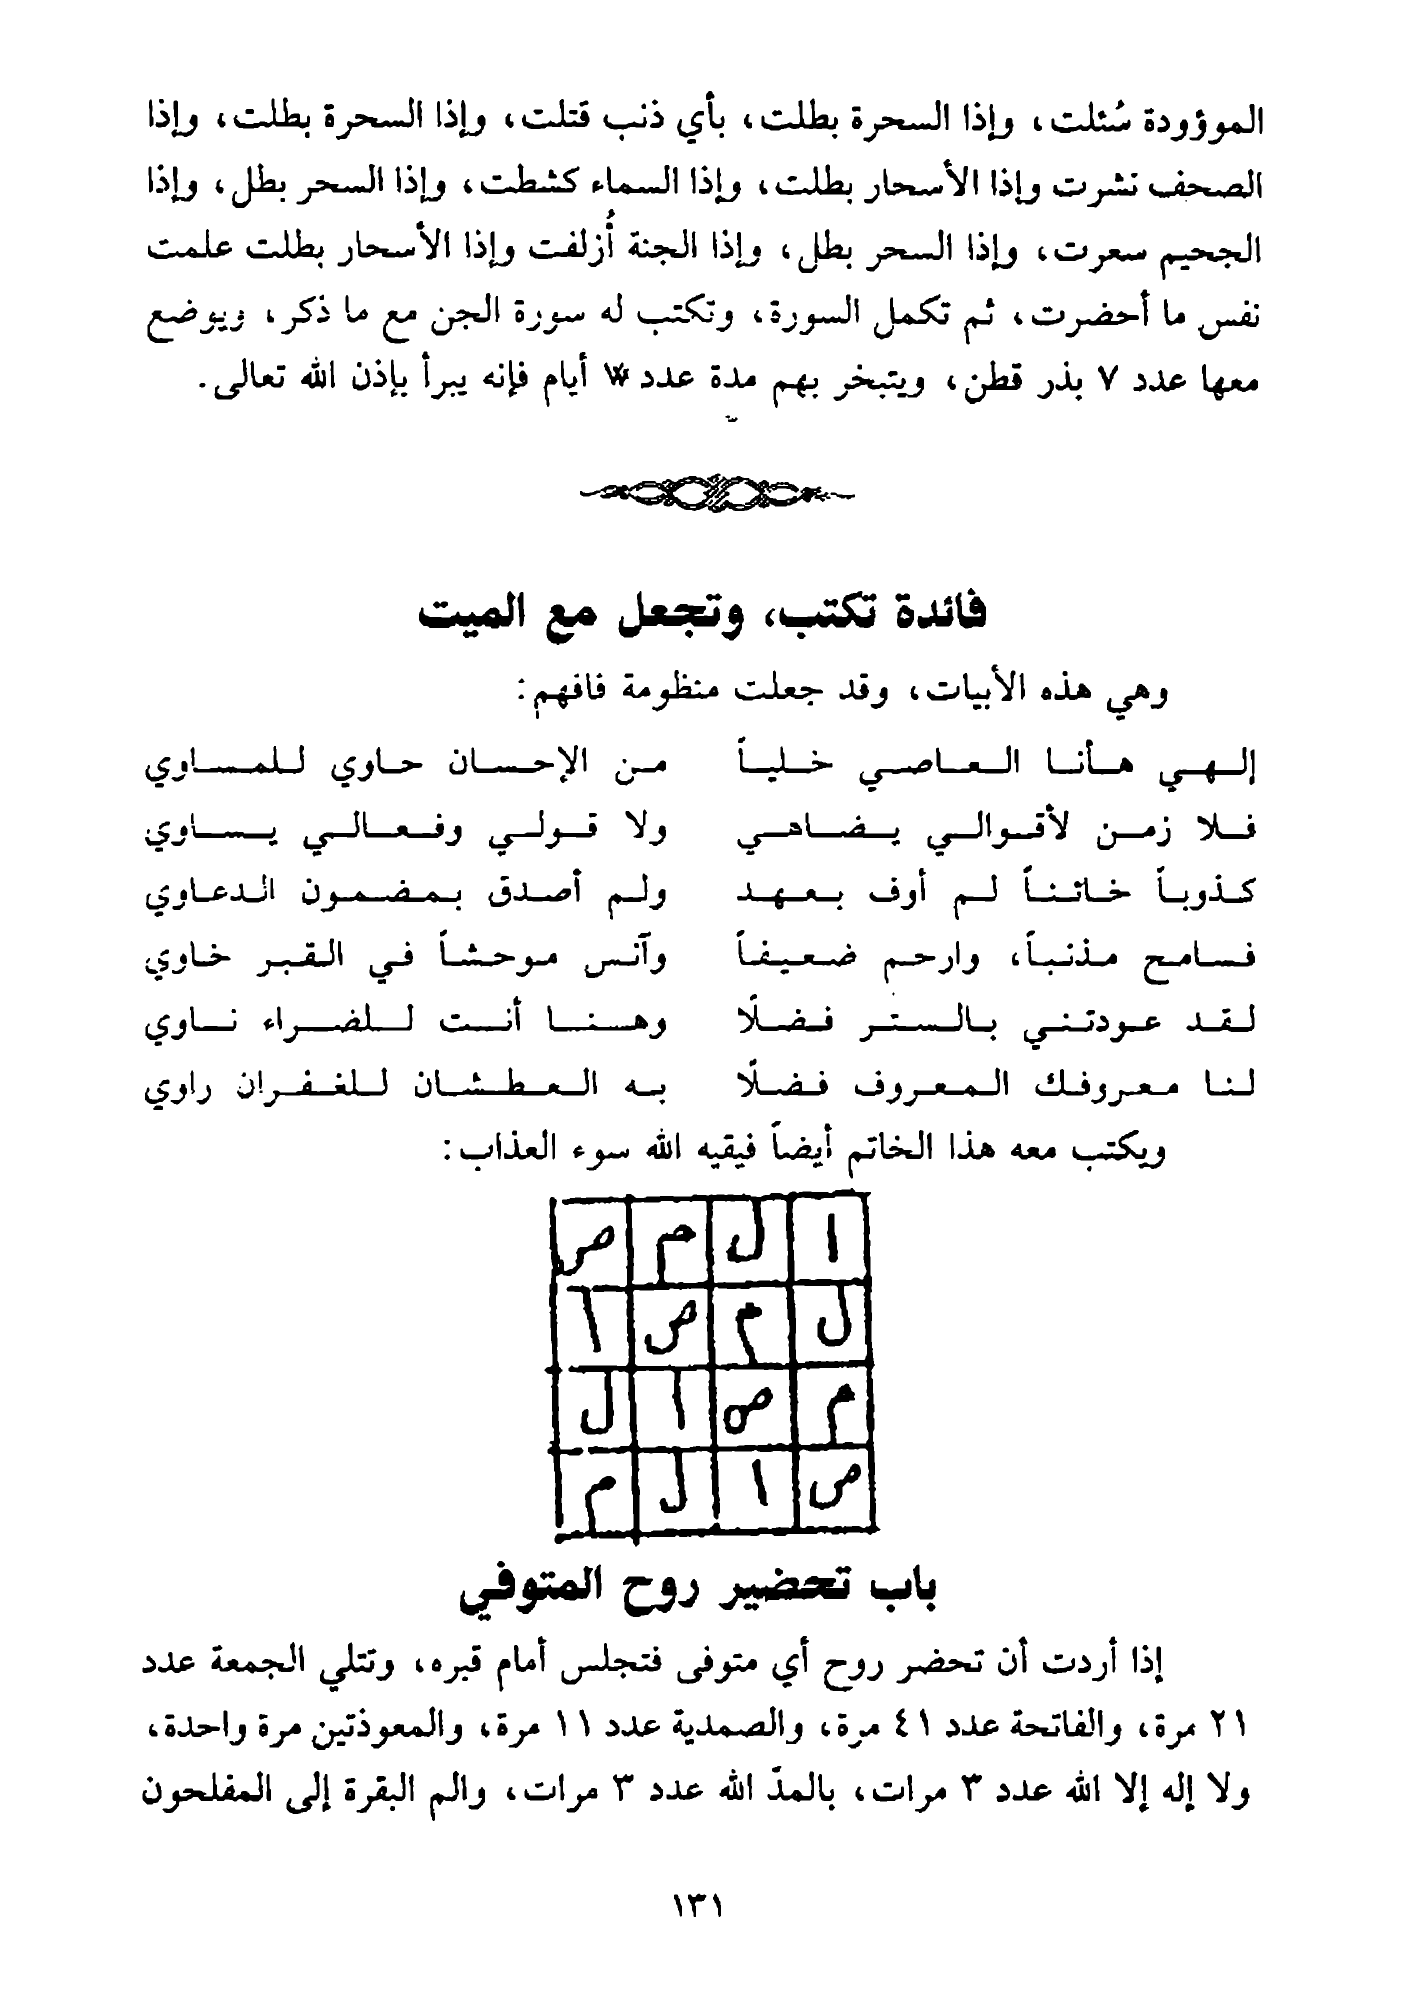 الموؤودة سُئلت، وإذا السحرة بطلت، بأي ذنب قتلت، وإذا السحرة بطلت، وإذا
الصحف نشرت وإذا الأسحار بطلت، وإذا السماء كشطت، وإذا السحر بطل، وإذا
الجحيم سعرت، وإذا السحر بطل، وإذا الجنة أُزلفت وإذا الأسحار بطلت علمت
نفس ما أحضرت، ثم تكمل السورة، وتكتب له سورة الجن مع ما ذكر، ويوضع
معها عدد ٧ بذر قطن، ويتبخر بهم مدة عدد أيام فإنه يبرأ بإذن الله تعالى.
فائدة تكتب، وتجعل مع الميت
وهي هذه الأبيات، وقد جعلت منظومة فافهم:
إلهي هأنا العاصي خلياً من الإحسان حاوي للمساوي
فلا زمن لأقوالي يضاهي ولا قولي وفعالي يساوي
كذوباً خائناً لم أوف بعهد ولم أصدق بمضمون الدعاوي
فسامح مذنباً، وارحم ضعيفاً وآنس موحشاً في القبر خاوي
لقد عودتني بالستر فضلًا وهنا أنت للضراء ناوي
لنا معروفك المعروف فضلًا به العطشان للغفران راوي
ويكتب معه هذا الخاتم أيضاً فيقيه الله سوء العذاب:
ا ل م ص
ل م ص ا
م ص ا ل
ص ا ل م
باب تحضير روح المتوفي
إذا أردت أن تحضر روح أي متوفى فتجلس أمام قبره، وتتلي الجمعة عدد
٢١ مرة، والفاتحة عدد ٤١ مرة، والصمدية عدد ١١ مرة، والمعوذتين مرة واحدة،
ولا إله إلا الله عدد ٣ مرات، بالمدّ الله عدد ٣ مرات، والم البقرة إلى المفلحون
١٣١